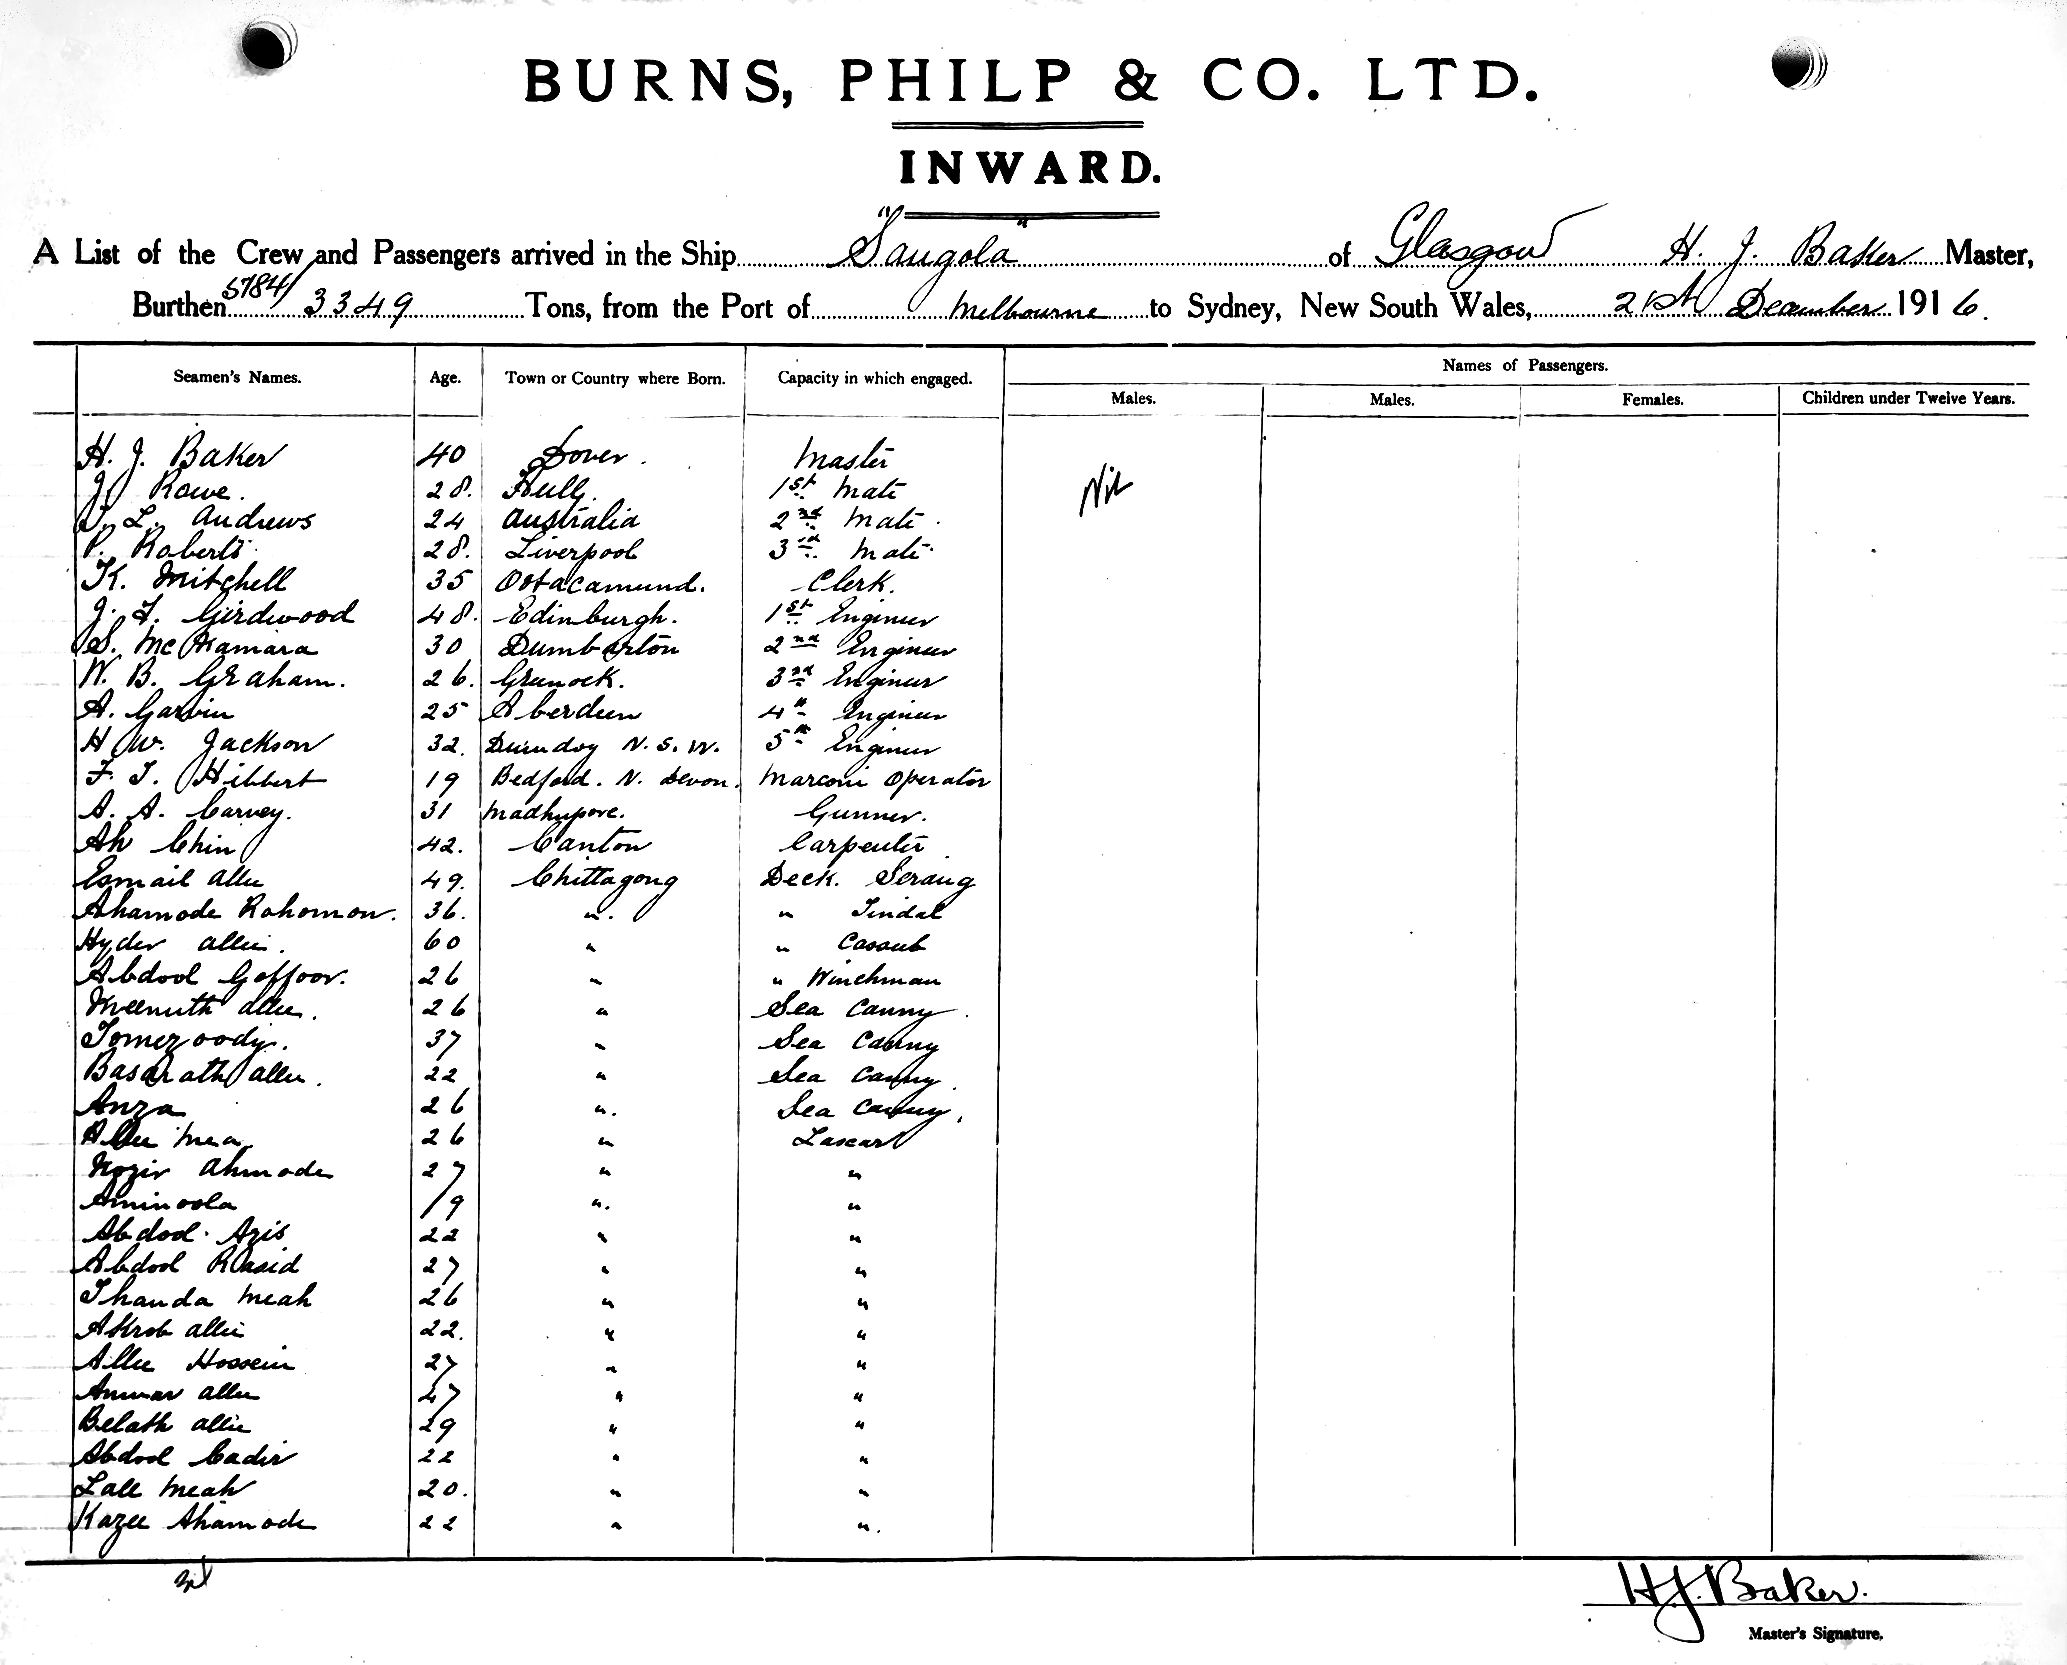 BURNS, PHILP & CO. LTD.
INWARD.
A List of the Crew and Passengers arrived in the Ship "Sangola" of Glasgow H. J. Baker Master,
Burthen 5784/3349 Tons, from the Port of Melbourne to Sydney, New South Wales, 21st December 1916.
Names of Passengers.
Seamen's Names. Age. Town or Country where Born. Capacity in which engaged. Males. Males. Females. Children under Twelve Years.
H. J. Baker 40 Dover. Master
J. Rowe. 28. Hull. 1st Mate Nil
L. Andrews 24 Australia 2nd Mate.
P. Roberts 28. Liverpool 3rd Mate
K. Mitchell 35 Ootacamund. Clerk.
J. F. Girdwood 48. Edinburgh. 1st Engineer
S. McNamara 30 Dumbarton 2nd Engineer
W. B. Graham. 26. Greenock. 3rd Engineer
A. Garvin 25 Aberdeen 4th Engineer
H. W. Jackson 32. N. S. W. 5th Engineer
F. T. Hibbert 19 Bedford. N. Devon. Marconi Operator
A. A. Carvey. 31 Madhupore. Gunner.
Ah Chin 42. Canton Carpenter
Esmail Allee 49. Chittagong Deck. Serang
Ahamode Rohomon. 36. " " Tindal
Hyder Allee. 60 " " Cassub
Abdool Goffoor. 26 " " Winchman
Allee. 26 " Sea Cunny.
Tomezoody. 37 " Sea Cunny
Basarath Allee. 22 " Sea Cunny.
Anza 26 " Sea Cunny.
Allee Mea 26 " Lascar
Nozir Ahmode 27 " "
Aminoola 19 " "
Abdool Azis 22 " "
Abdool Rasid 27 " "
Thanda Meah 26 " "
Akrob Allee 22. " "
Allee Hossein 27 " "
Anwar Allee 47 " "
Belath Allee 29 " "
Abdool Cadir 22 " "
Lall Meah 20. " "
Kazee Ahamode 22 " "
H. J. Baker.
Master's Signature.